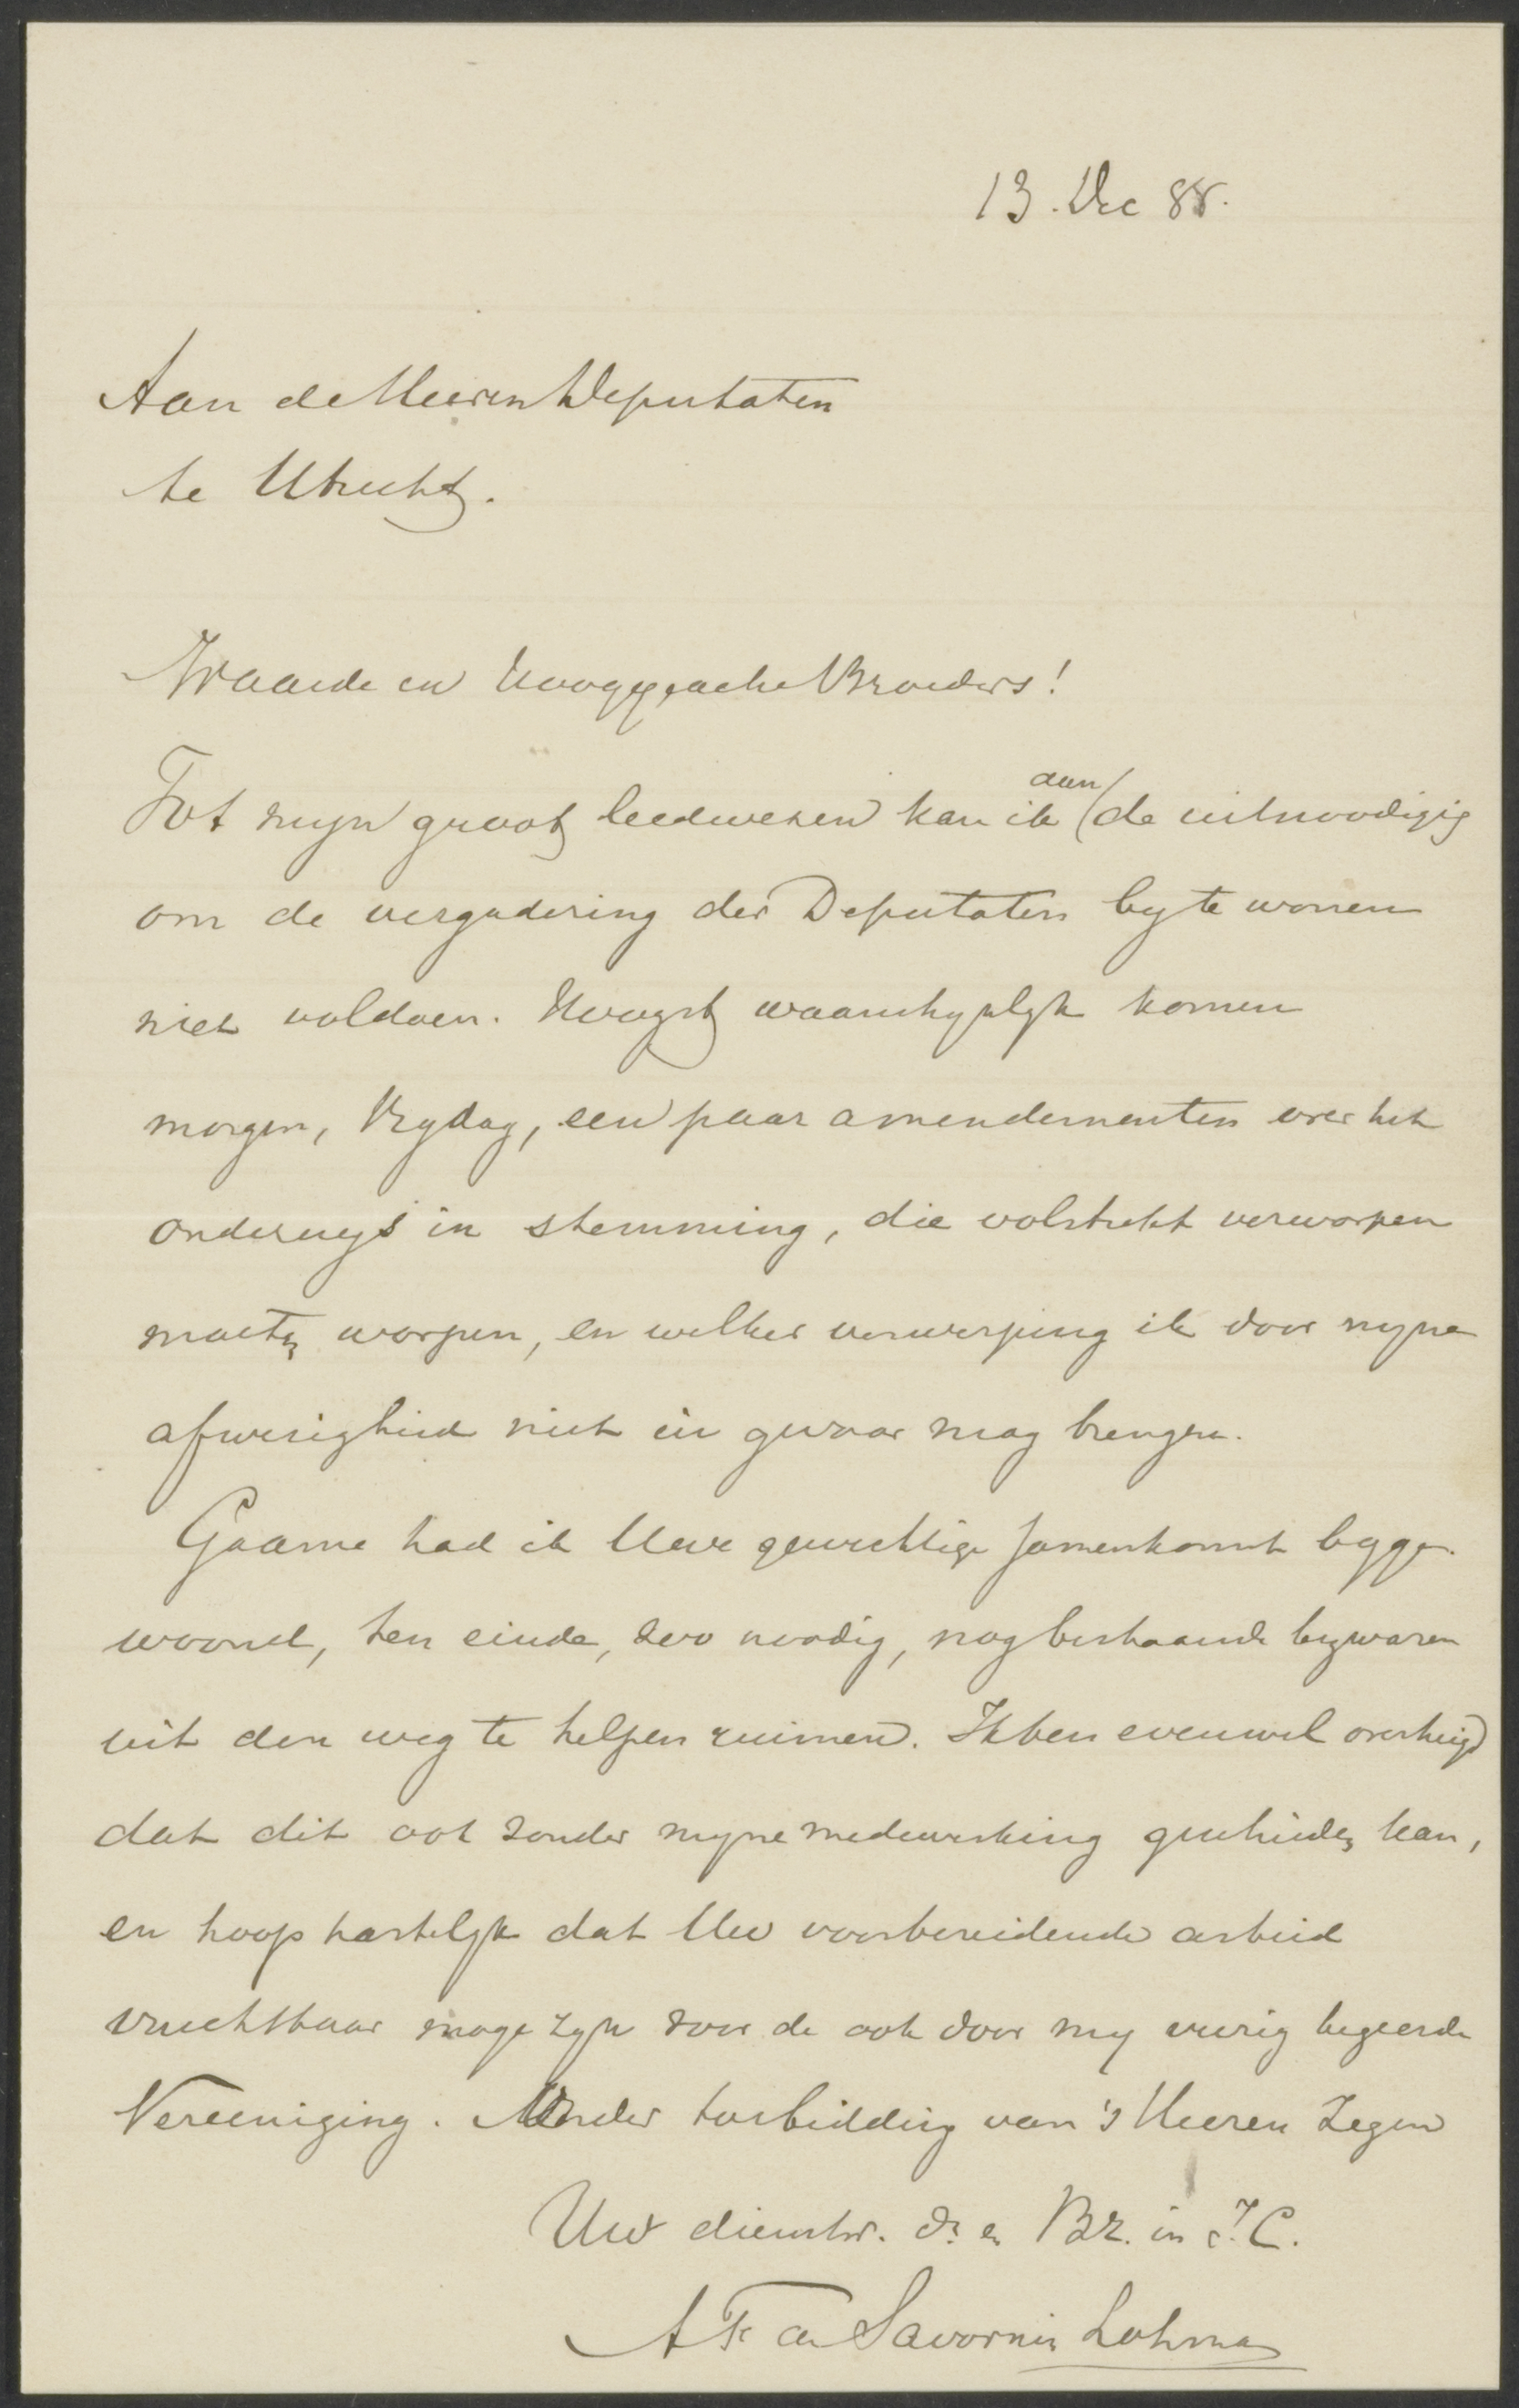 13. Dec 88.
Aan de Heeren Deputaten
te Utrecht.
Waarde en Hooggeachte Broeders!
Tot mijn groot leedwezen kan ik aan de uitnoodigig
om de vergadering der Deputaten by te wonen
niet voldoen. Hoogst waarschynlyk komen
morgen, Vrydag, een paar amendementen over het
onderwys in stemming, die volstrekt verworpen
moeten worpen, en welker verwerping ik door myne
afwezigheid niet in gevaar mag brengen.
Gaarne had ik Uwe gewichtige samenkomst bygge-
woond, ten einde, zoo noodig, nog bestaande bezwaren
uit den weg te helpen ruimen. Ik ben evenwel overtuigd
dat dit ook zonder myne medewerking geschieden kan,
en hoop hartelyk dat Uw voorbereidende arbeid
vruchtbaar moge zyn voor de ook door my vurig begeerde
Vereeniging. Onder toebidding van 's Heeren Zegen
Uw dienstw. dr. en Br. in J. C.
A F de Savornin Lohman